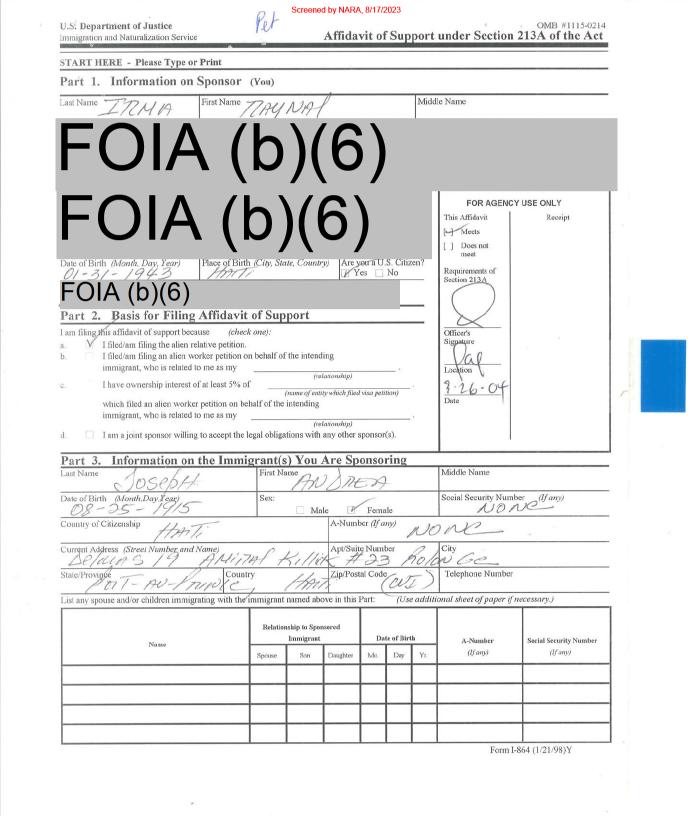 Screened by NARA, 8/17/2023
Pet
U.S. Department of Justice
Immigration and Naturalization Service
OMB #1115-0214
Affidavit of Support under Section 213A of the Act
START HERE - Please Type or Print
Part 1. Information on Sponsor (You)
Last Name IRMA First Name RAYNAL Middle Name
FOIA (b)(6)
FOIA (b)(6)
FOR AGENCY USE ONLY
This Affidavit Receipt
[ ] Meets
[ ] Does not
meet
Requirements of
Section 213A
Officer's
Signature
Location
Date
8-26-04
Date of Birth (Month, Day, Year) Place of Birth (City, State, Country) Are you a U.S. Citizen?
01-31-1943 HAITI Yes No
FOIA (b)(6)
Part 2. Basis for Filing Affidavit of Support
I am filing this affidavit of support because (check one):
a. I filed/am filing the alien relative petition.
b. I filed/am filing an alien worker petition on behalf of the intending
immigrant, who is related to me as my
(relationship)
c. I have ownership interest of at least 5% of
(name of entity which filed visa petition)
which filed an alien worker petition on behalf of the intending
immigrant, who is related to me as my
(relationship)
d. I am a joint sponsor willing to accept the legal obligations with any other sponsor(s).
Part 3. Information on the Immigrant(s) You Are Sponsoring
Last Name JOSEPH First Name ANDREA Middle Name
Date of Birth (Month,Day,Year) Sex: Social Security Number (If any)
08-25-1915 Male Female NONE
Country of Citizenship HAITI A-Number (If any) NONE
Current Address (Street Number and Name) Apt/Suite Number City
19 #23
State/Province Country Zip/Postal Code Telephone Number
PORT-AU-PRINCE, HAITI
List any spouse and/or children immigrating with the immigrant named above in this Part: (Use additional sheet of paper if necessary.)
Name Relationship to Sponsored Immigrant Date of Birth A-Number (If any) Social Security Number (If any)
Spouse Son Daughter Mo. Day Yr.
Form I-864 (1/21/98)Y